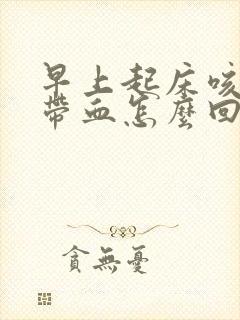 早上起床咳
帶血怎麼回
貪無憂